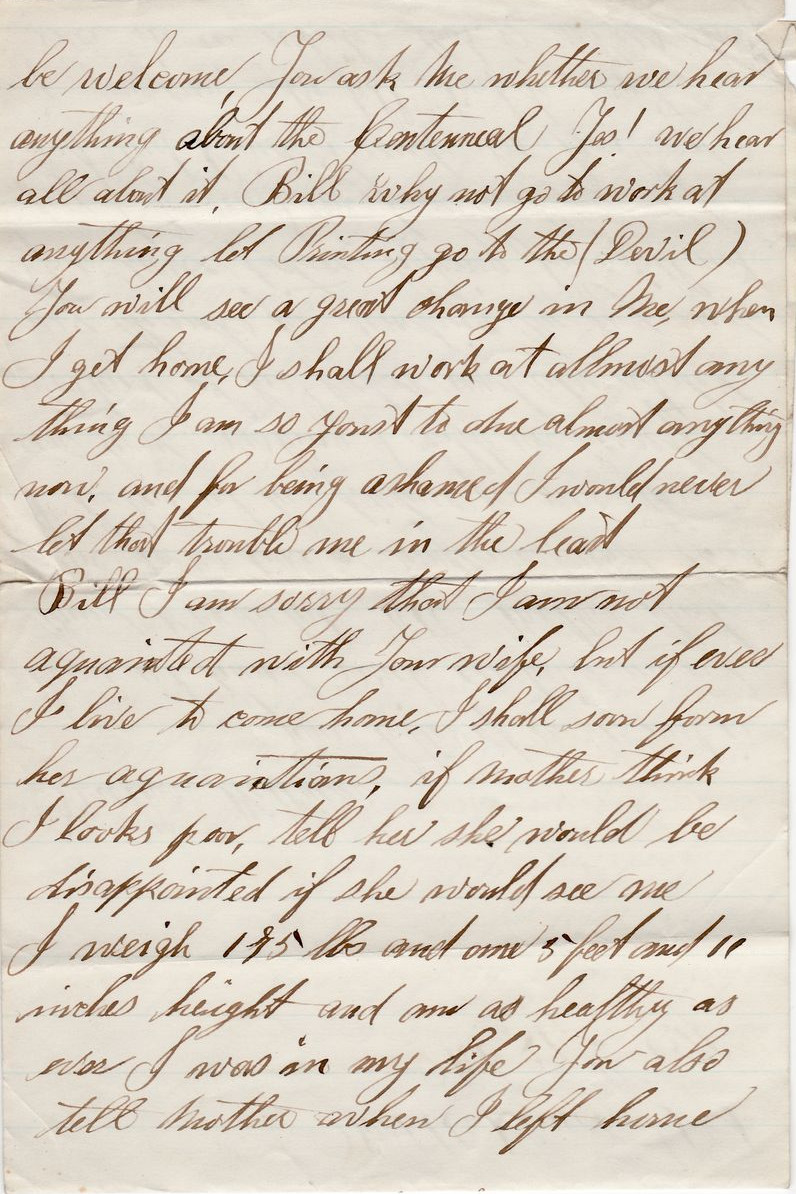 be welcome, You ask Me whether we hear
anything about the Centenneal Yes! we hear
all about it, Bill why not go to work at
anything let Printing go to the (Devil)
You will see a great change in Me, when
I get home, I shall work at allmost any
thing I am so youst to due almost anything
now, and for being ashamed I would never
let that trouble me in the least
Bill I am sorry that I am not
aquainted with Your wife, but if ever
I live to come home, I shall soon form
her aquaintians, if Mother think
I looks poor, tell her she would be
disappointed if she would see me
I weigh 195 lbs and am 5 feet and 11
inches height and am as healthy as
ever I was in my life You also
tell Mother when I left home